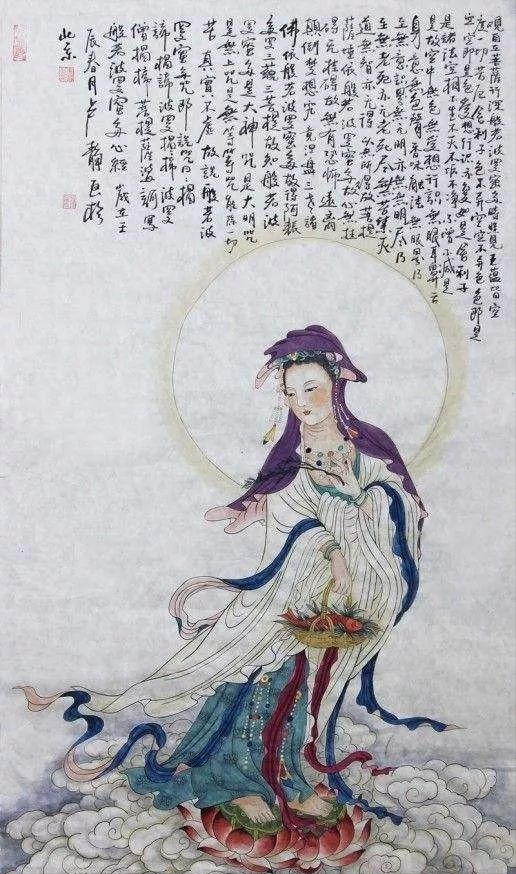 觀自在菩薩行深般若波羅蜜多時照見五蘊皆空
度一切苦厄舍利子色不异空空不异色色即是
空空即是色受想行識亦復如是舍利子
是諸法空相不生不滅不垢不淨不增不減是
故空中無色無受想行識無眼耳鼻舌
身意無色聲香味觸法無眼界乃
至無意識界無無明亦無無明盡乃
至無老死亦無老死盡無苦集滅
道無智亦无得以無所得故菩提
薩埵依般若波羅蜜多故心無罣
礙无罣礙故無有恐怖遠离
顛倒夢想究竟涅槃三世諸
佛依般若波羅蜜多故得阿耨
多羅三藐三菩提故知般若波
羅蜜多是大神咒是大明咒
是無上咒是無等等咒能除一切
苦真實不虛故說般若波
羅蜜多咒即說咒曰揭
諦揭諦波羅揭諦波羅
僧揭諦菩提薩婆訶寫
般若波羅蜜多心經歲在壬
辰春月卢静於
北京